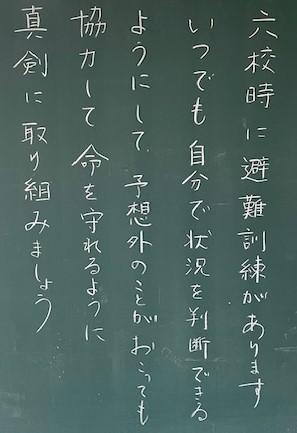 六校時に避難訓練があります
いつでも自分で状況を判断できる
ようにして、予想外のことがおこっても
協力して命を守れるように
真剣に取り組みましょう